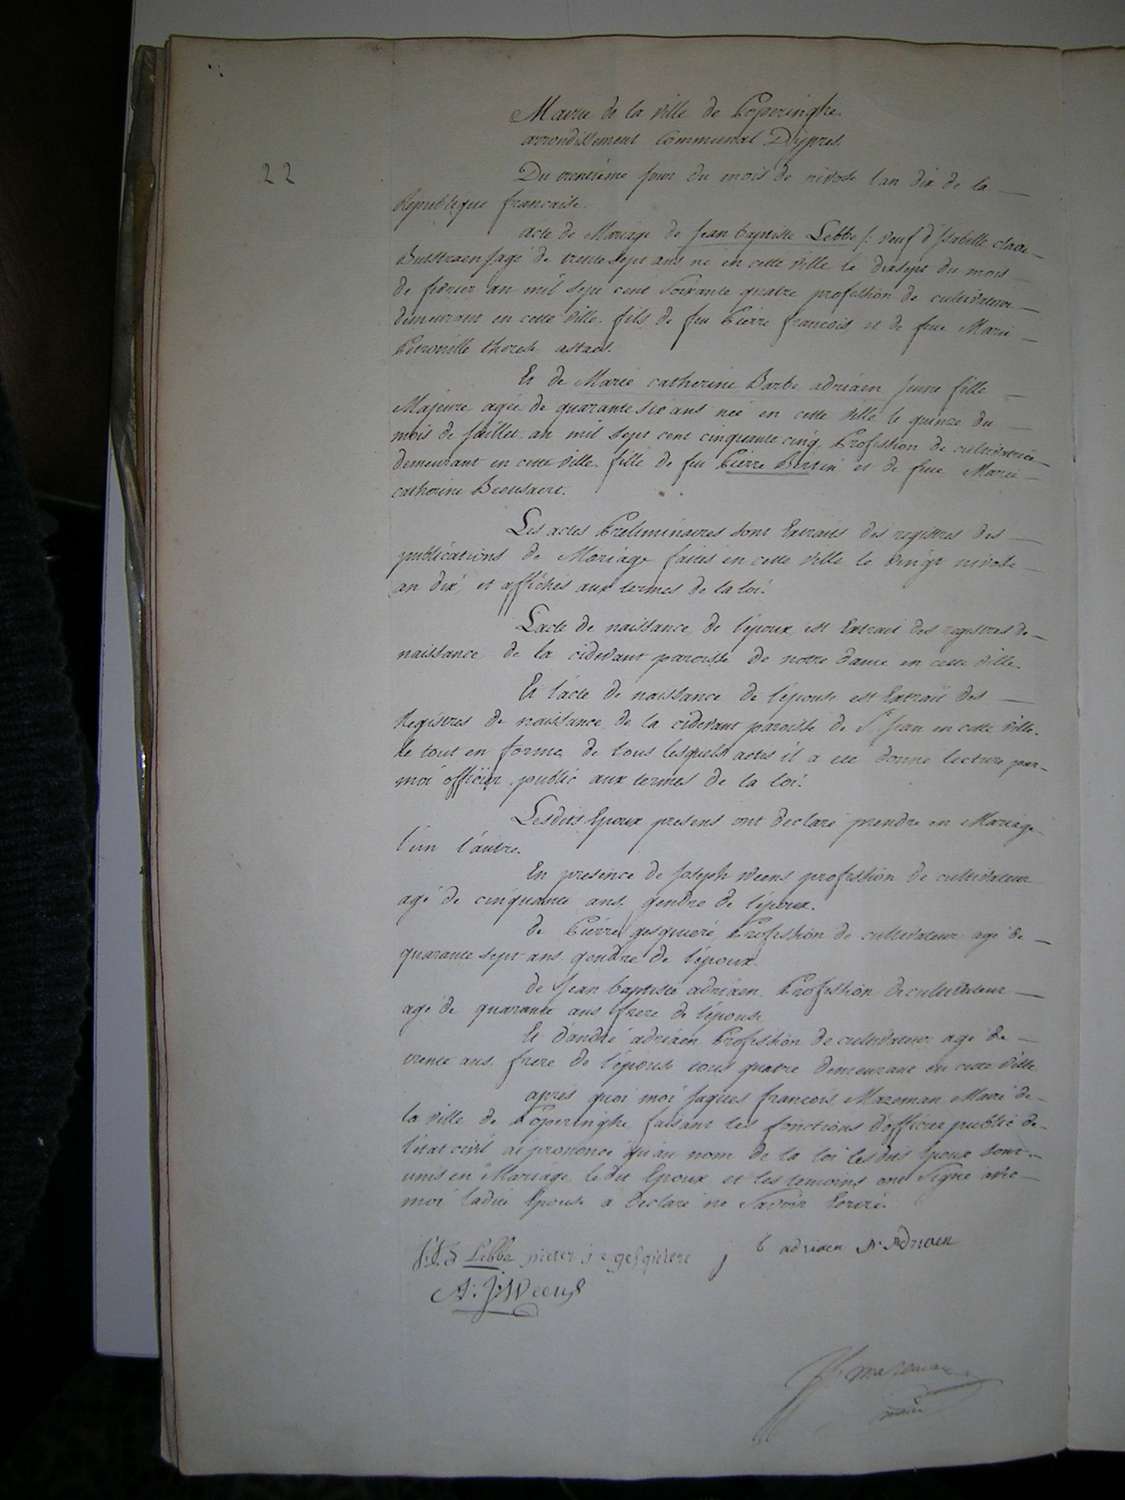 22
Mairie de la ville de Poperinghe
arrondissement Communal D'ypres.
Du trentième jour du mois de nivose l'an dix de la
Republique francaise.
acte de Mariage de Jean baptiste Lebbe /: veuf d'Isabelle claire
agé de trente sept ans né en cette ville le dixsept du mois
de fevrier an mil sept cent soixante quatre profession de cultivateur
demeurant en cette ville fils de feu Pierre francois et de feue Marie
Petronille therese astaes.
Et de Marie catherine Barbe adriaen jeune fille
Majeure agée de quarante six ans née en cette ville le quinze du
mois de juillet an mil sept cent cinquante cinq Profession de cultivatrice
demeurant en cette ville fille de feu Pierre Bertin et de feue Marie
catherine Beussaert.
Les actes Preliminaires sont Extraits des registres des
publications de Mariage faites en cette ville le vingt nivose
an dix et affichés aux termes de la loi.
L'acte de naissance de l'époux est Extrait des registres de
naissance de la cidevant paroisse de notre dame en cette ville.
Et l'acte de naissance de l'épouse est Extrait des
Registres de naissance de la cidevant paroisse de St Jean en cette ville.
le tout en forme de tous lesquels actes il a été donné lecture par
moi officier public aux termes de la loi.
Lesdits Epoux presens ont declaré prendre en Mariage
l'un l'autre.
En presence de Joseph Weens profession de cultivateur
agé de cinquante ans gendre de l'époux.
de Pierre gesquiere Profession de cultivateur agé de
quarante sept ans gendre de l'époux
de Jean baptiste adriaen Profession de cultivateur
agé de quarante ans frere de l'épouse
Et d'andré adriaen Profession de cultivateur agé de
trente ans frere de l'épouse tous quatre demeurant en cette ville
après quoi moi Jaques francois Mazeman Maire de
la ville de Poperinghe faisant les fonctions d'officier public de
l'etat civil ai prononcé qu'au nom de la loi lesdits Epoux sont
unis en Mariage ledit Epoux et les temoins ont signé avec
moi ladite Epouse a declaré ne savoir Ecrire.
J: B Lebbe pieter j gesquiere j b adriaen A Adriaen
A: J: Weens
mazeman
maire